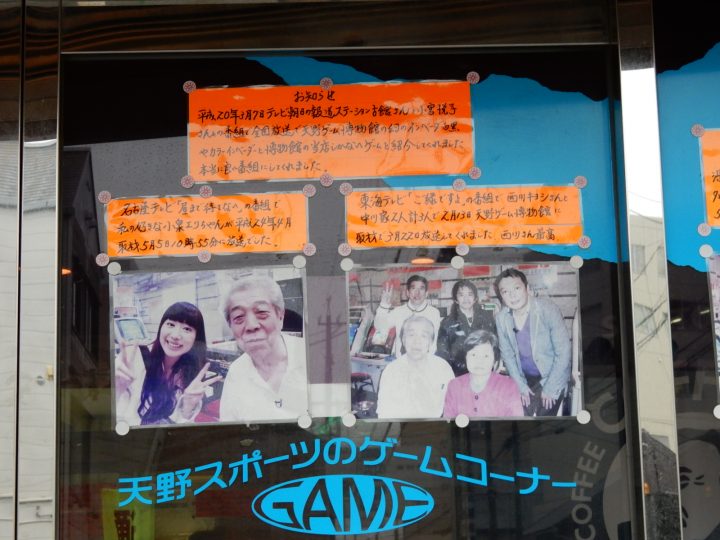 お知らせ
平成20年3月7日テレビ朝日の報道ステーション古館さんと小宮悦子
さんとの番組で全国放送で天野ゲーム博物館の幻のインベーダー白黒
やカラーインベーダーと博物館の当店しかないゲームと紹介してくれました
本当に良い番組にしてくれました
名古屋テレビ「昼まで待てない」の番組で
私の好きな小栗エコちゃんが平成24年4月
取材5月5日10時55分に放送でした!
東海テレビ「ご縁ですよ」の番組で西川キヨシさんと
中川家2人計3人で2月13日天野ゲーム博物館に
取材で3月22日放送してくれました 西川さん最高
天野スポーツのゲームコーナー
GAME
COFFEE